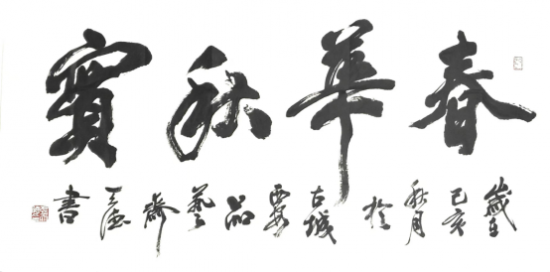 春華秋實
歲在己亥秋月於古城西安品藝齋王德書